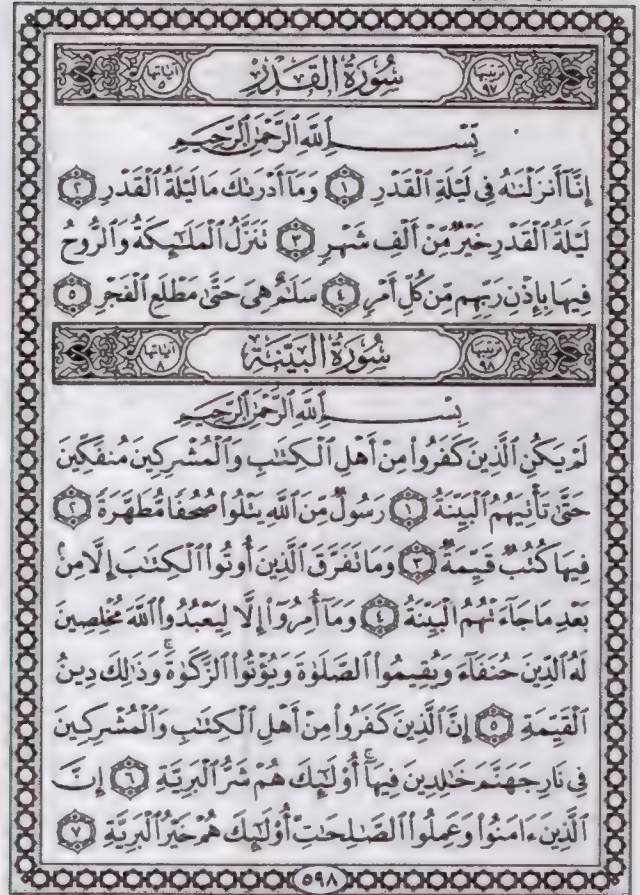 ترتيبها ٩٧ سُورَةُ القَدْرِ آياتها ٥
بِسْمِ اللَّهِ الرَّحْمَٰنِ الرَّحِيمِ
إِنَّآ أَنزَلْنَٰهُ فِى لَيْلَةِ ٱلْقَدْرِ ١ وَمَآ أَدْرَىٰكَ مَا لَيْلَةُ ٱلْقَدْرِ ٢
لَيْلَةُ ٱلْقَدْرِ خَيْرٌ مِّنْ أَلْفِ شَهْرٍ ٣ تَنَزَّلُ ٱلْمَلَٰٓئِكَةُ وَٱلرُّوحُ
فِيهَا بِإِذْنِ رَبِّهِم مِّن كُلِّ أَمْرٍ ٤ سَلَٰمٌ هِىَ حَتَّىٰ مَطْلَعِ ٱلْفَجْرِ ٥
ترتيبها ٩٨ سُورَةُ البَيِّنَةِ آياتها ٨
بِسْمِ اللَّهِ الرَّحْمَٰنِ الرَّحِيمِ
لَمْ يَكُنِ ٱلَّذِينَ كَفَرُوا۟ مِنْ أَهْلِ ٱلْكِتَٰبِ وَٱلْمُشْرِكِينَ مُنفَكِّينَ
حَتَّىٰ تَأْتِيَهُمُ ٱلْبَيِّنَةُ ١ رَسُولٌ مِّنَ ٱللَّهِ يَتْلُوا۟ صُحُفًا مُّطَهَّرَةً ٢
فِيهَا كُتُبٌ قَيِّمَةٌ ٣ وَمَا تَفَرَّقَ ٱلَّذِينَ أُوتُوا۟ ٱلْكِتَٰبَ إِلَّا مِنۢ
بَعْدِ مَا جَآءَتْهُمُ ٱلْبَيِّنَةُ ٤ وَمَآ أُمِرُوٓا۟ إِلَّا لِيَعْبُدُوا۟ ٱللَّهَ مُخْلِصِينَ
لَهُ ٱلدِّينَ حُنَفَآءَ وَيُقِيمُوا۟ ٱلصَّلَوٰةَ وَيُؤْتُوا۟ ٱلزَّكَوٰةَ ۚ وَذَٰلِكَ دِينُ
ٱلْقَيِّمَةِ ٥ إِنَّ ٱلَّذِينَ كَفَرُوا۟ مِنْ أَهْلِ ٱلْكِتَٰبِ وَٱلْمُشْرِكِينَ
فِى نَارِ جَهَنَّمَ خَٰلِدِينَ فِيهَآ ۚ أُو۟لَٰٓئِكَ هُمْ شَرُّ ٱلْبَرِيَّةِ ٦ إِنَّ
ٱلَّذِينَ ءَامَنُوا۟ وَعَمِلُوا۟ ٱلصَّٰلِحَٰتِ أُو۟لَٰٓئِكَ هُمْ خَيْرُ ٱلْبَرِيَّةِ ٧
٥٩٨